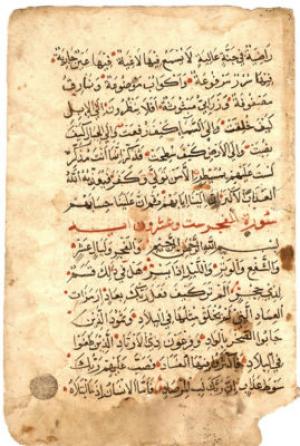 راضية في جنة عالية لا تسمع فيها لاغية فيها عين جارية
فيها سرر مرفوعة واكواب موضوعة ونمارق
مصفوفة وزرابي مبثوثة افلا ينظرون الى الابل
كيف خلقت والى السماء كيف رفعت والى الجبال كيف
نصبت والى الارض كيف سطحت فذكر انما انت مذكر
لست عليهم بمسيطر الا من تولى وكفر فيعذبه الله
العذاب الاكبر ان الينا ايابهم ثم ان علينا حسابهم
سورة الفجر ست وعشرون اية
بسم الله الرحمن الرحيم والفجر وليال عشر
والشفع والوتر والليل اذا يسر هل في ذلك قسم
لذي حجر الم تر كيف فعل ربك بعاد ارم ذات
العماد التي لم يخلق مثلها في البلاد وثمود الذين
جابوا الصخر بالواد وفرعون ذي الاوتاد الذين طغوا
في البلاد فاكثروا فيها الفساد فصب عليهم ربك
سوط عذاب ان ربك لبالمرصاد فاما الانسان اذا ما ابتلاه